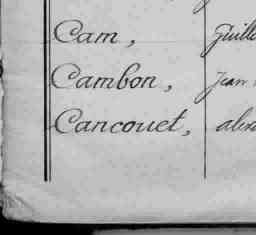 Cam, Guill
Cambon, Jean
Cancouet, alex